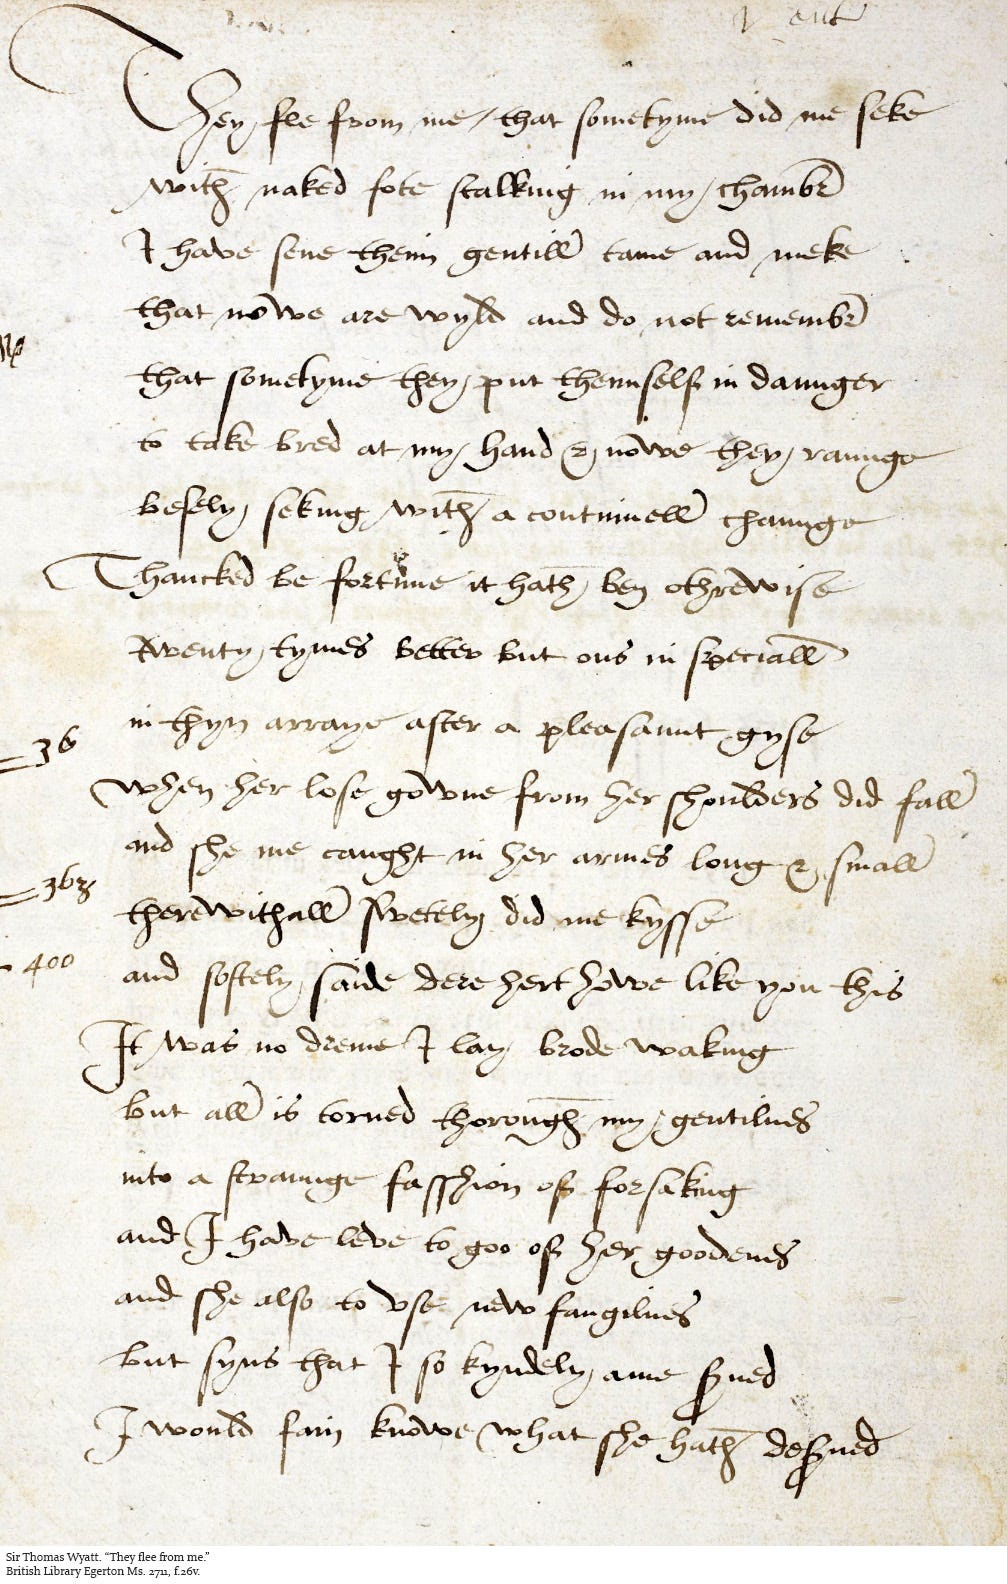 ent
They fle from me / that sometyme did me seke
with naked fote stalking in my chambr
I have sene theim gentill tame and meke
that nowe are wyld and do not remembr
that sometyme they put theimself in daunger
to take bred at my hand & nowe they raunge
besely seking with a continuell chaunge
Thancked be fortune it hath ben othrewise
twenty tymes better but ons in speciall
in thyn arraye after a pleasaunt gyse
36
when her lose gowne from her shoulders did fall
and she me caught in her armes long & small
363
therewithall swetely did me kysse
400
and softely saide dere hert howe like you this
It was no dreme I lay brode waking
but all is torned thorough my gentilnes
into a straunge fasshion of forsaking
and I have leve to goo of her goodenes
and she also to vse new fangilnes
but syns that I so kyndely ame s̲ved
I would fain knowe what she hath des̲ved
Sir Thomas Wyatt. “They flee from me.”
British Library Egerton Ms. 2711, f.26v.